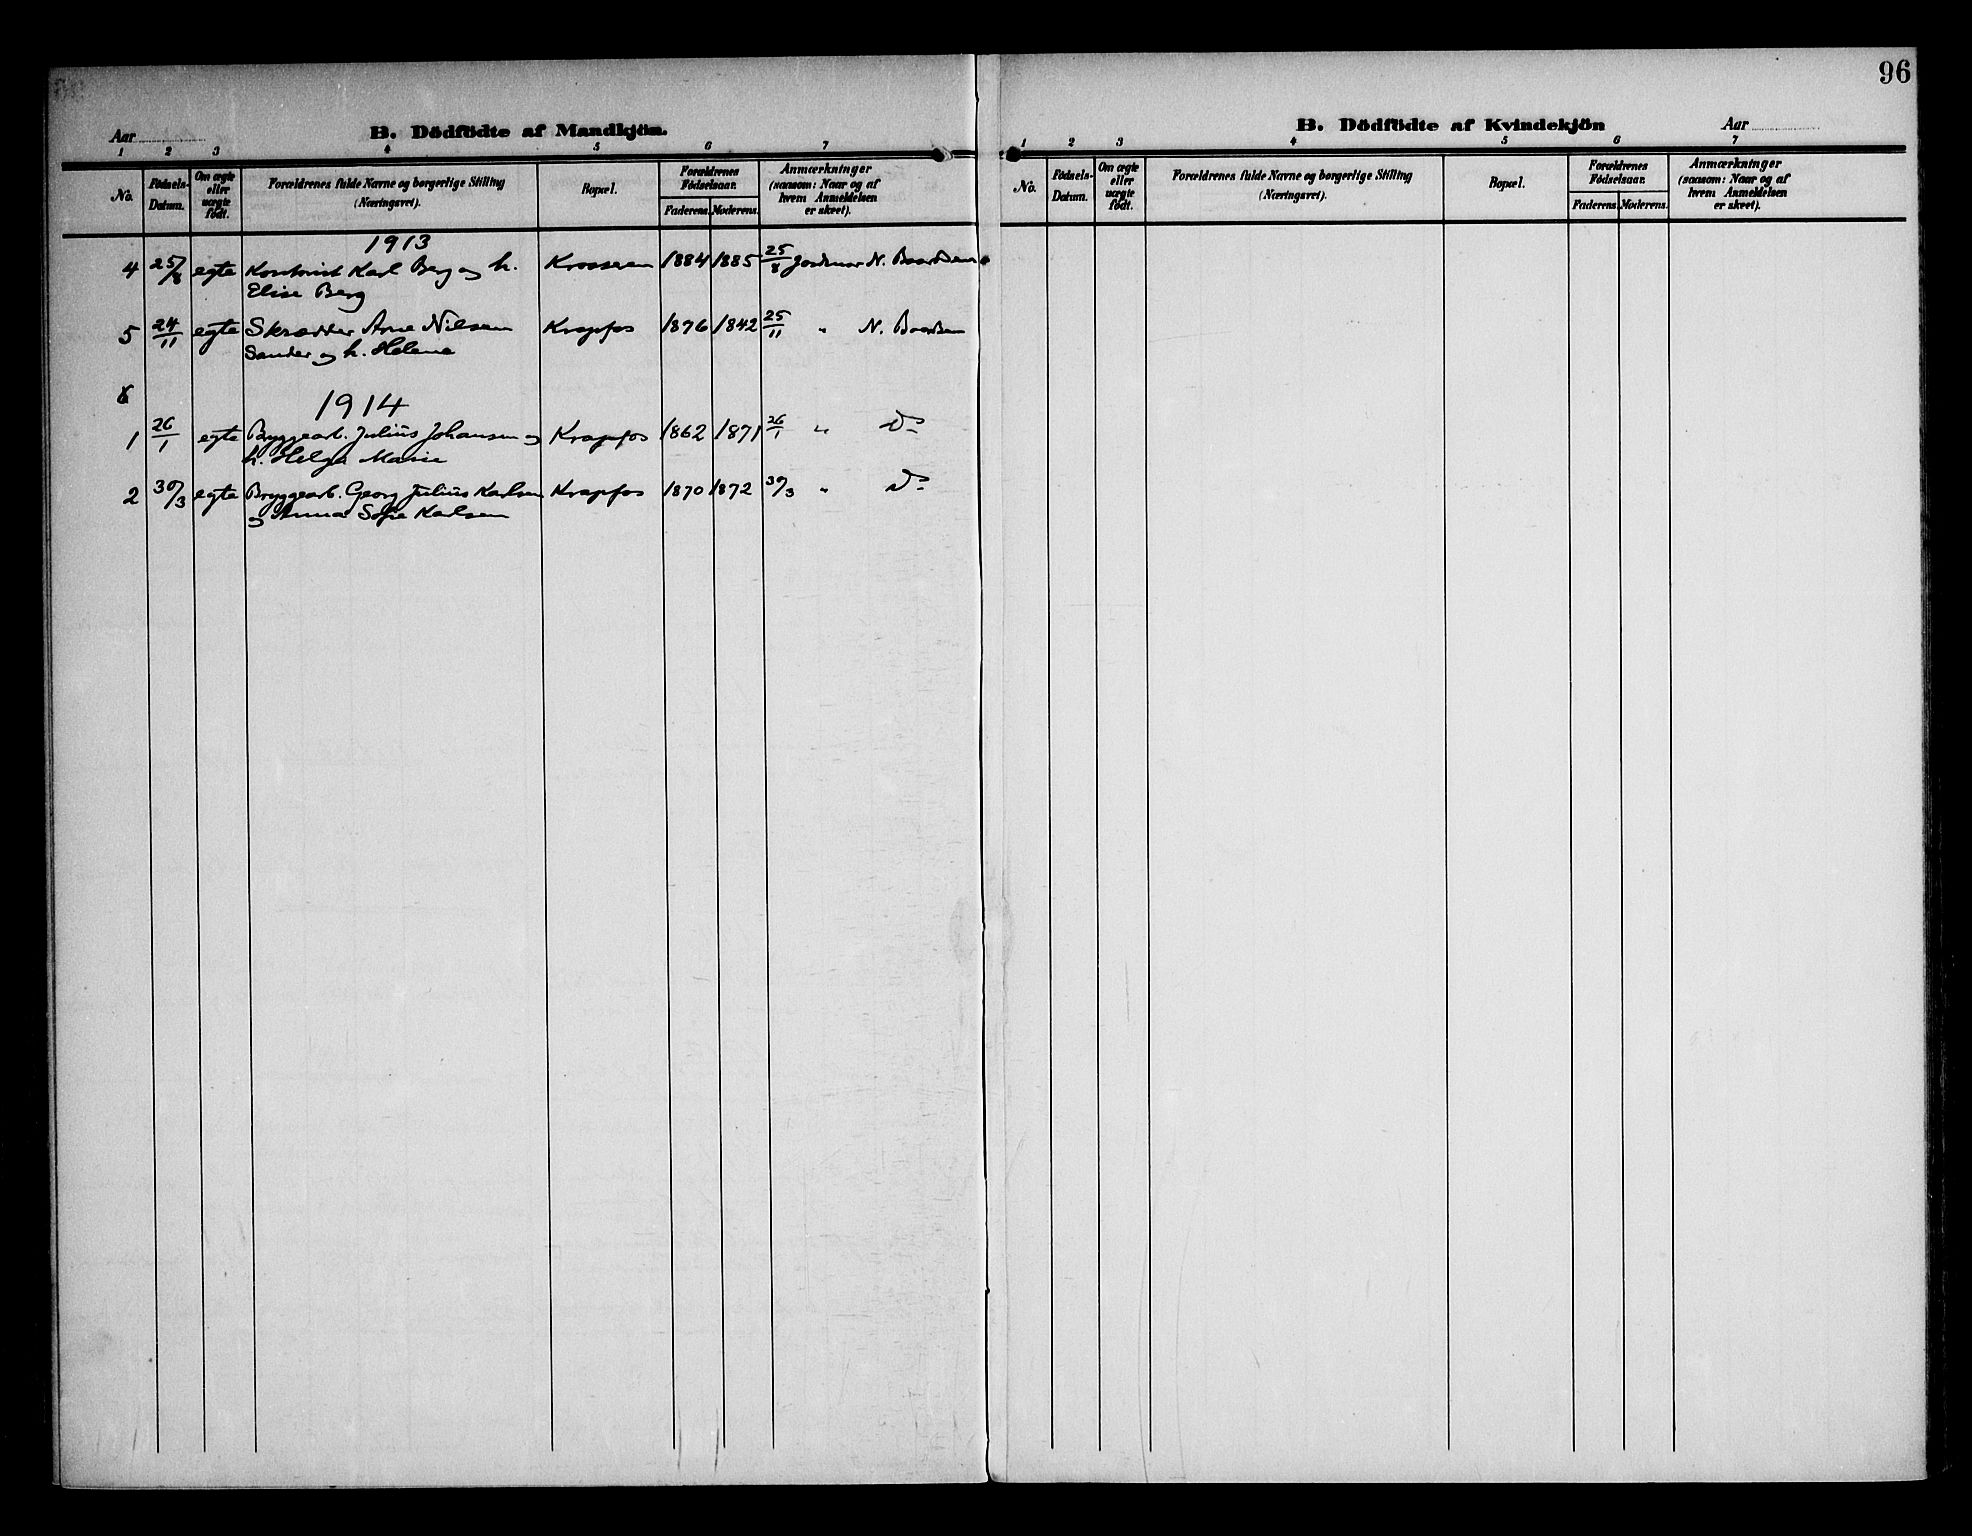 96
Aar
B. Dödfödte af Mandkjön.
1 2 3 4 5 6 7
No.
Födsels-
Datum.
Om ægte
eller
uægte
födt.
Forældrenes fulde Navne og borgerlige Stilling
(Næringsvei).
Bopæl.
Forældrenes
Födselsaar.
Faderens. Moderens.
Anmærkninger
(saasom: Naar og af
hvem Anmeldelsen
er skeet).
1913
4 25/8 egte Kontorist Karl Berg og h. 1884 1885 25/8 Jordmor N. Baardsen
Elise Berg
5 24/11 egte Skrædder Arne Nilsen Krapfos 1876 1842 25/11 " N. Baardsen
Sander og h. Helene
1914
1 26/1 egte Bryggearb. Julius Johansen og Krapfos 1862 1871 26/1 " Do
h. Helga Marie
2 30/3 egte Bryggearb. Georg Julius Karlsen Krapfos 1870 1872 30/3 " Do
og Anna Sofie Karlsen
B. Dödfödte af Kvindekjön
Aar
1 2 3 4 5 6 7
No.
Födsels-
Datum.
Om ægte
eller
uægte
födt.
Forældrenes fulde Navne og borgerlige Stilling
(Næringsvei).
Bopæl.
Forældrenes
Födselsaar.
Faderens. Moderens.
Anmærkninger
(saasom: Naar og af
hvem Anmeldelsen
er skeet).